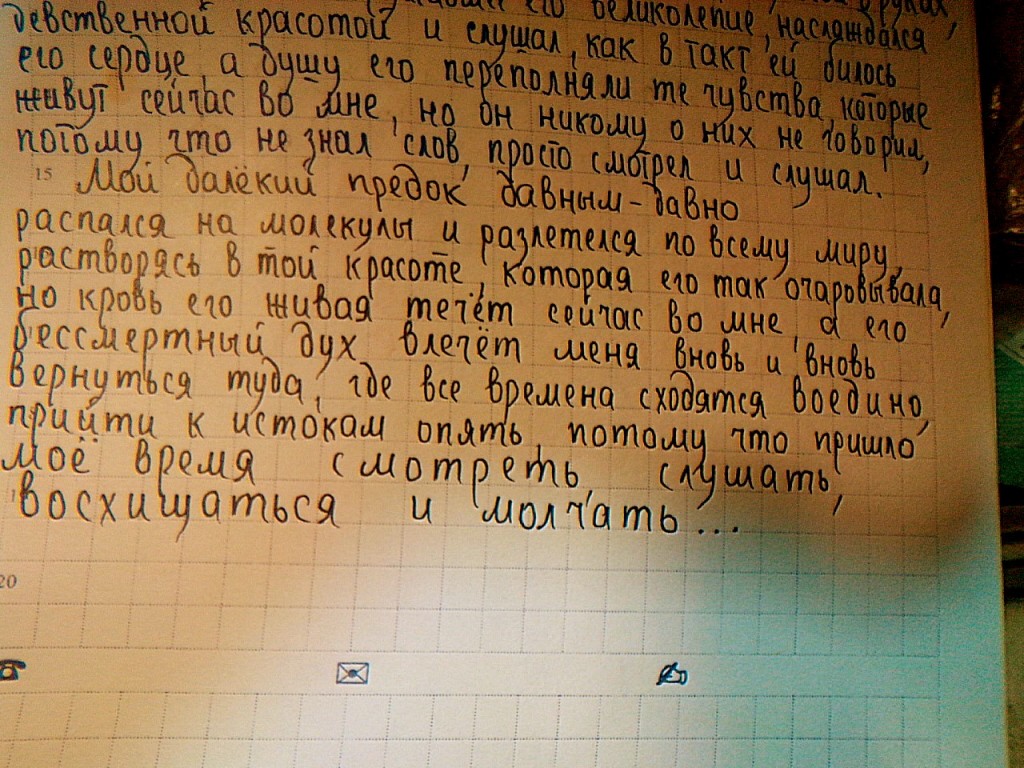 его великолепие, наслаждался
девственной красотой и слушал, как в такт ей билось
его сердце, а душу его переполняли те чувства, которые
живут сейчас во мне, но он никому о них не говорил,
потому что не знал слов, просто смотрел и слушал.
15 Мой далёкий предок давным-давно
распался на молекулы и разлетелся по всему миру,
растворясь в той красоте, которая его так очаровывала,
но кровь его живая течёт сейчас во мне, а его
бессмертный дух влечёт меня вновь и вновь
вернуться туда, где все времена сходятся воедино,
прийти к истокам опять, потому что пришло
моё время смотреть, слушать,
восхищаться и молчать...
20